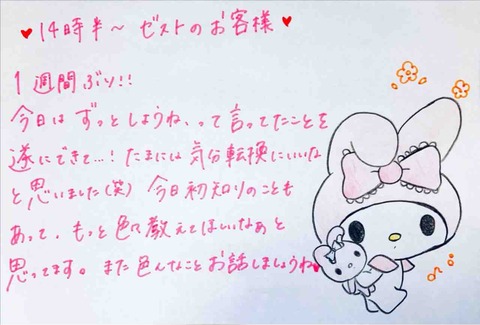 ♥14時半～ ゼストのお客様♥
1週間ぶり!!
今日はずっとしようね、って言ってたことを
遂にできて…! たまには気分転換にいいな
と思いました(笑) 今日初知りのことも
あって、もっと色々教えてほしいなあと
思ってます。また色んなことお話しましょうね♥